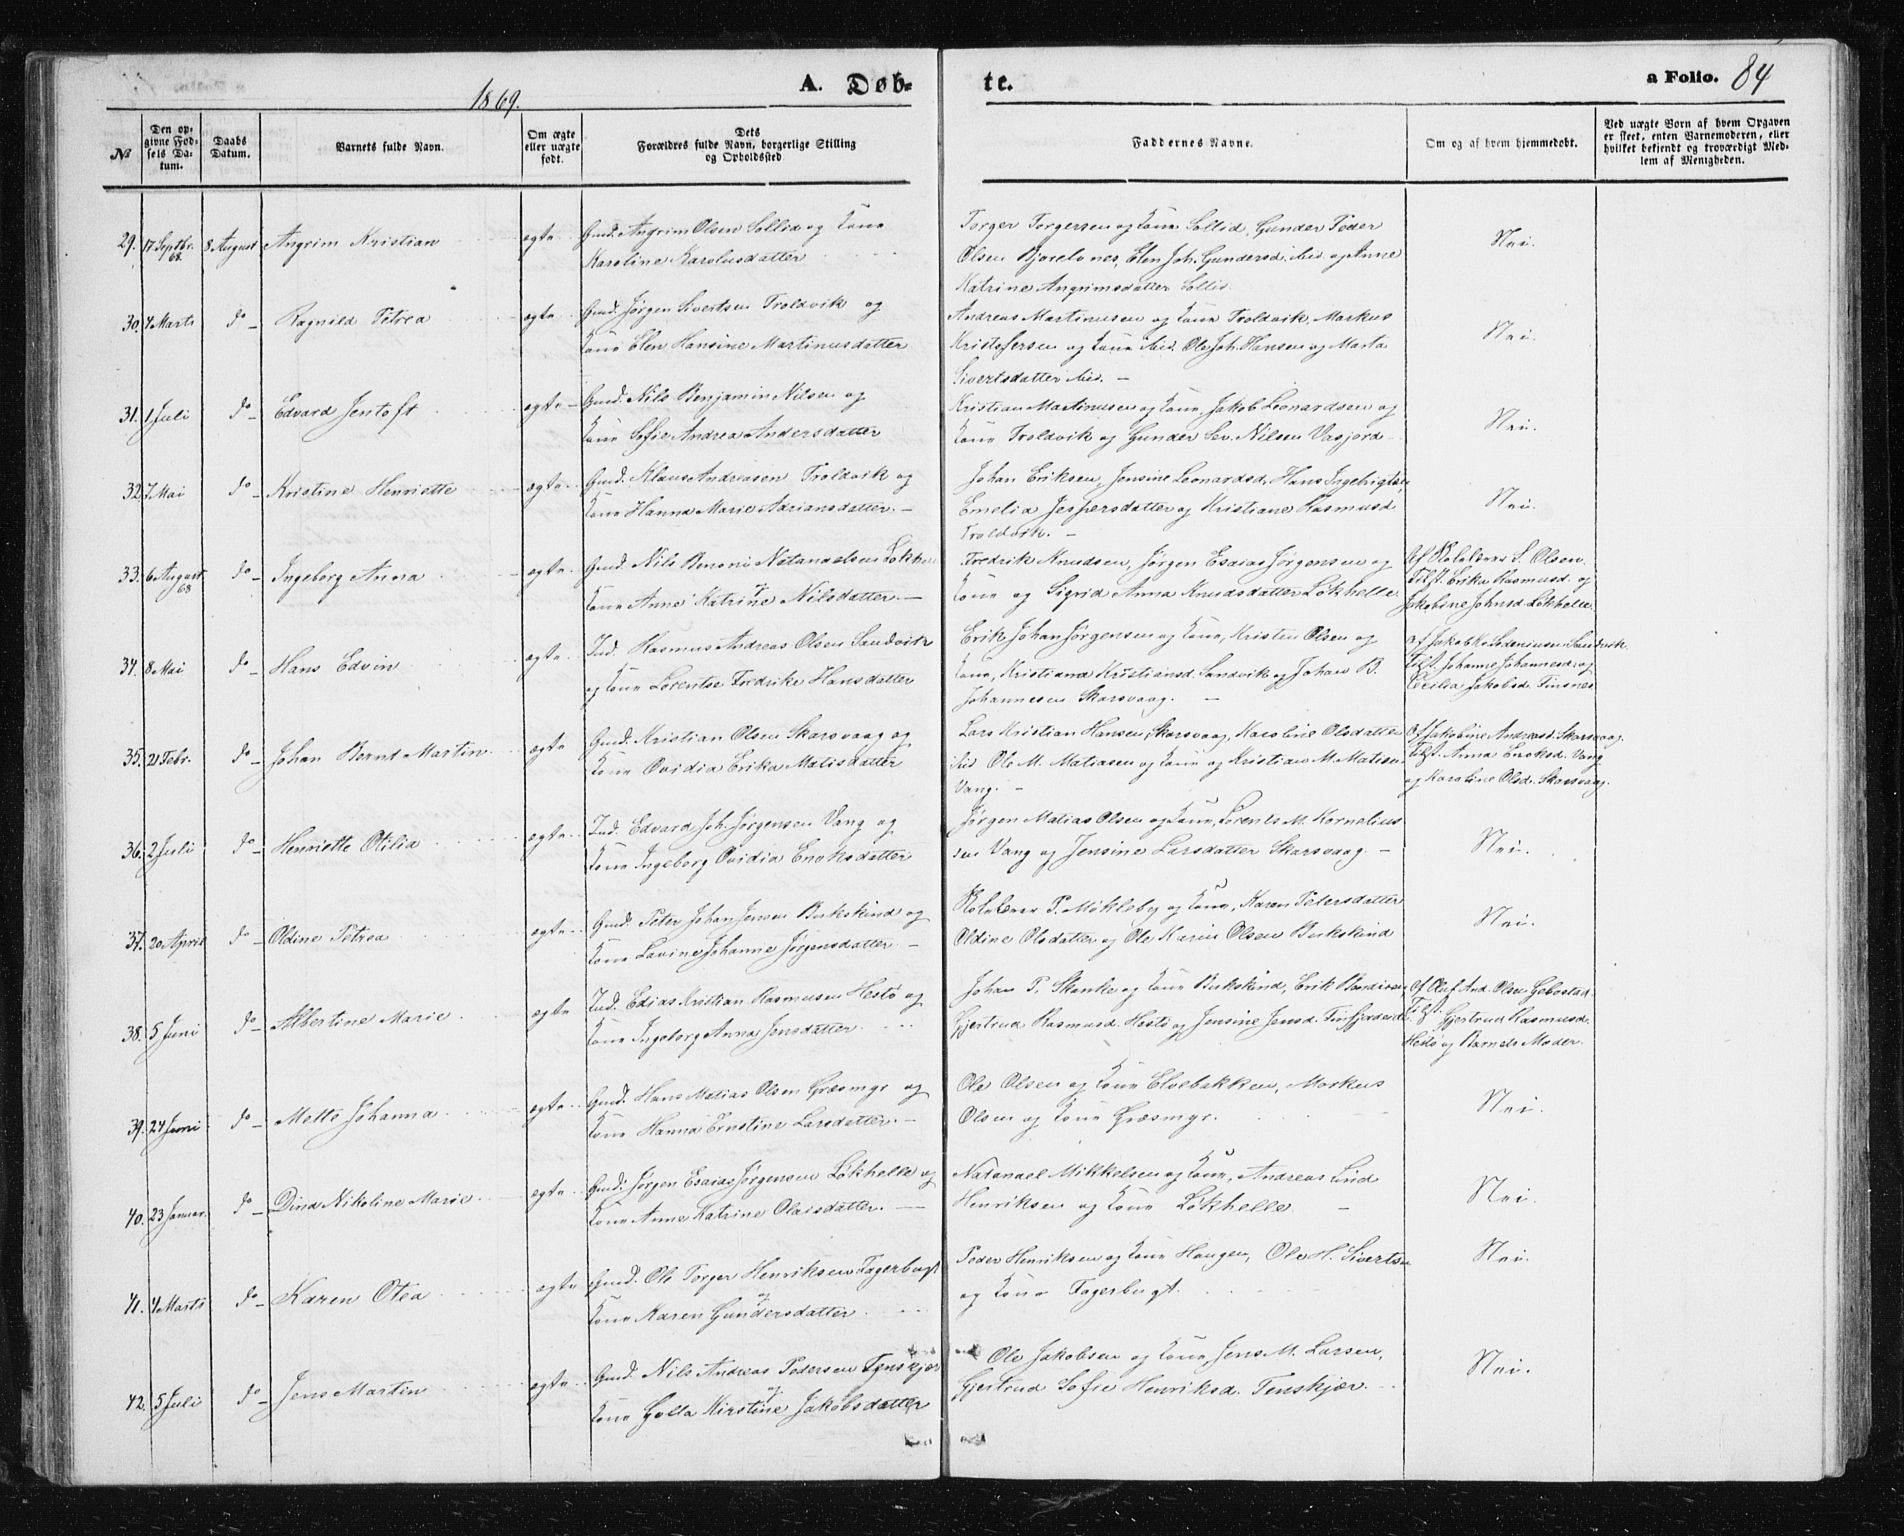 1869.
A. Døb-
te.
a Folio. 84
No
Den op-
givne Fød-
sels Da-
tum.
Daabs
Datum.
Barnets fulde Navn.
Om ægte
eller uægte
født.
Dets
Forældres fulde Navn, borgerlige Stilling
og Opholdssted
Faddernes Navne.
Om og af hvem hjemmedøbt.
Ved uægte Born af hvem Opgaven
er skeet, enten Barnemoderen, eller
hvilket bekjendt og troværdigt Med-
lem af Menigheden.
29. 17 Septbr. 68 8 August Angrim Kristian ægte Gmd. Angrim Olsen Sollid og Kone
Karoline Karolusdatter
Torger Torgersen og Kone Sollid, Gunder Peder
Olsen Bjorelvnes, Elen Joh. Gundersd. ibid. og Anne
Katrine Angrimsdatter Sollid.
Nei.
30. 4 Marts do Ragnild Petrea ægte Gmd. Jørgen Sivertsen Troldvik og
Kone Elen Hansine Martinusdatter
Andreas Martinusen og Kone Troldvik, Markus
Kristofersen og Kone ibid. Ole Joh. Hansen og Marta
Sivertsdatter ibid.
Nei.
31. 1 Juli do Edvard Jentoft ægte Gmd. Nils Benjamin Nilsen og
Kone Sofie Andrea Andersdatter
Kristian Martinusen og Kone, Jakob Leonardsen og
Kone Troldvik og Gunder Sev. Nilsen Vasjord
Nei.
32. 7 Mai do Kristine Henriette ægte Gmd. Klaus Andreasen Troldvik og
Kone Hanna Marie Adriansdatter.
Johan Eriksen, Jensine Leonardsd, Hans Ingebrigtsen,
Emelia Jespersdatter og Kristiane Rasmusd
Troldvik.
Nei.
33. 6 August 68 do Ingeborg Anna ægte Gmd. Nils Benoni Natanaelsen Løkhelle
og
Kone Anne Katrine Nilsdatter.
Fredrik Knudsen, Jørgen Esaias Jørgensen og
Kone og Sigrid Anna Knudsdatter Løkhelle
Af Skolelærer S. Olsen.
Tilst. Erika Rasmusd. og
Jakobine Johnsd. Løkhelle.
34. 8 Mai do Hans Edvin ægte Ind. Rasmus Andreas Olsen Sandvik
og Kone Lorentse Fredrike Hansdatter
Erik Johan Jørgensen og Kone, Kristen Olsen og
Kone, Kristiana Kristiansd. Sandvik og Johan B.
Johannesen Skarsvaag.
af Jakob Sandvik.
Tilst. Johanne Johannesd. og
Cecilia Jakobsd. Finsnes
35. 21 Febr. do Johan Bernt Martin ægte Gmd. Kristian Olsen Skarsvaag og
Kone Ovidia Erika Matisdatter
Lars Kristian Hansen Skarsvaag, Karoline Olsdatter
ibid Ole M. Matiasen og Kone og Kristian M. Matisen
Vang.
Af Jakobine Andreasd. Skarsvaag
Tilst. Anna Enoksd. Vang
og Karoline Olsd. Skarsvaag.
36. 2 Juli do Henriette Otilia ægte Ind. Edvard Joh. Jørgensen Vang og
Kone Ingeborg Ovidia Enoksdatter
Jørgen Matias Olsen og Kone, Lorents M. Kornelius
sen Vang og Jensine Larsdatter Skarsvaag.
Nei.
37. 20 April do Oldine Petrea ægte Gmd. Peter Johan Jensen Bukskind og
Kone Lavine Johanne Jørgensdatter
Skolelærer P. Møkleby og Kone, Karen Petersdatter
Oldine Olsdatter og Ole Karin Olsen Bukskind
Nei.
38. 5 Juni do Albertine Marie ægte Ind. Edias Kristian Rasmusen Hestø og
Kone Ingeborg Anna Jensdatter.
Johan P. Skanke og Kone Bukskind, Erik
Gjertrud Rasmusd. Hestø og Jensine Jensd. Finfjordeide
Af Oluf And. Olsen Gebostad
Tilst. Gjertrud Rasmusd.
Hestø og Barnets Moder.
39. 24 Juni do Mette Johanna ægte Gmd. Hans Matias Olsen Græsmyr og
Kone Hanna Ernstine Larsdatter.
Ole Olsen og Kone Elvebakken, Markus
Olsen og Kone Græsmyr.
Nei.
40. 23 Januar. do Dina Nikoline Marie ægte Gmd. Jørgen Esaias Jørgensen Løkhelle og
Kone Anne Katrine Olaisdatter.
Natanael Mikkelsen og Kone, Andreas Lind
Henriksen og Kone Løkhelle.
Nei.
41. 4 Marts do Karen Otea ægte Gmd. Ole Torger Henriksen Fagerbugt
og
Kone Karen Gundersdatter
Peder Henriksen og Kone Haugen, Ole H. Sivertsen
og Kone Fagerbugt.
Nei.
42. 5 Juli do Jens Martin ægte Gmd. Nils Andreas Pedersen Tenskjær
og
Kone Golla Kirstine Jakobsdatter
Ole Jakobsen og Kone, Jens M. Larsen,
Gjertrud Sofie Henriksd. Tenskjær.
Nei.